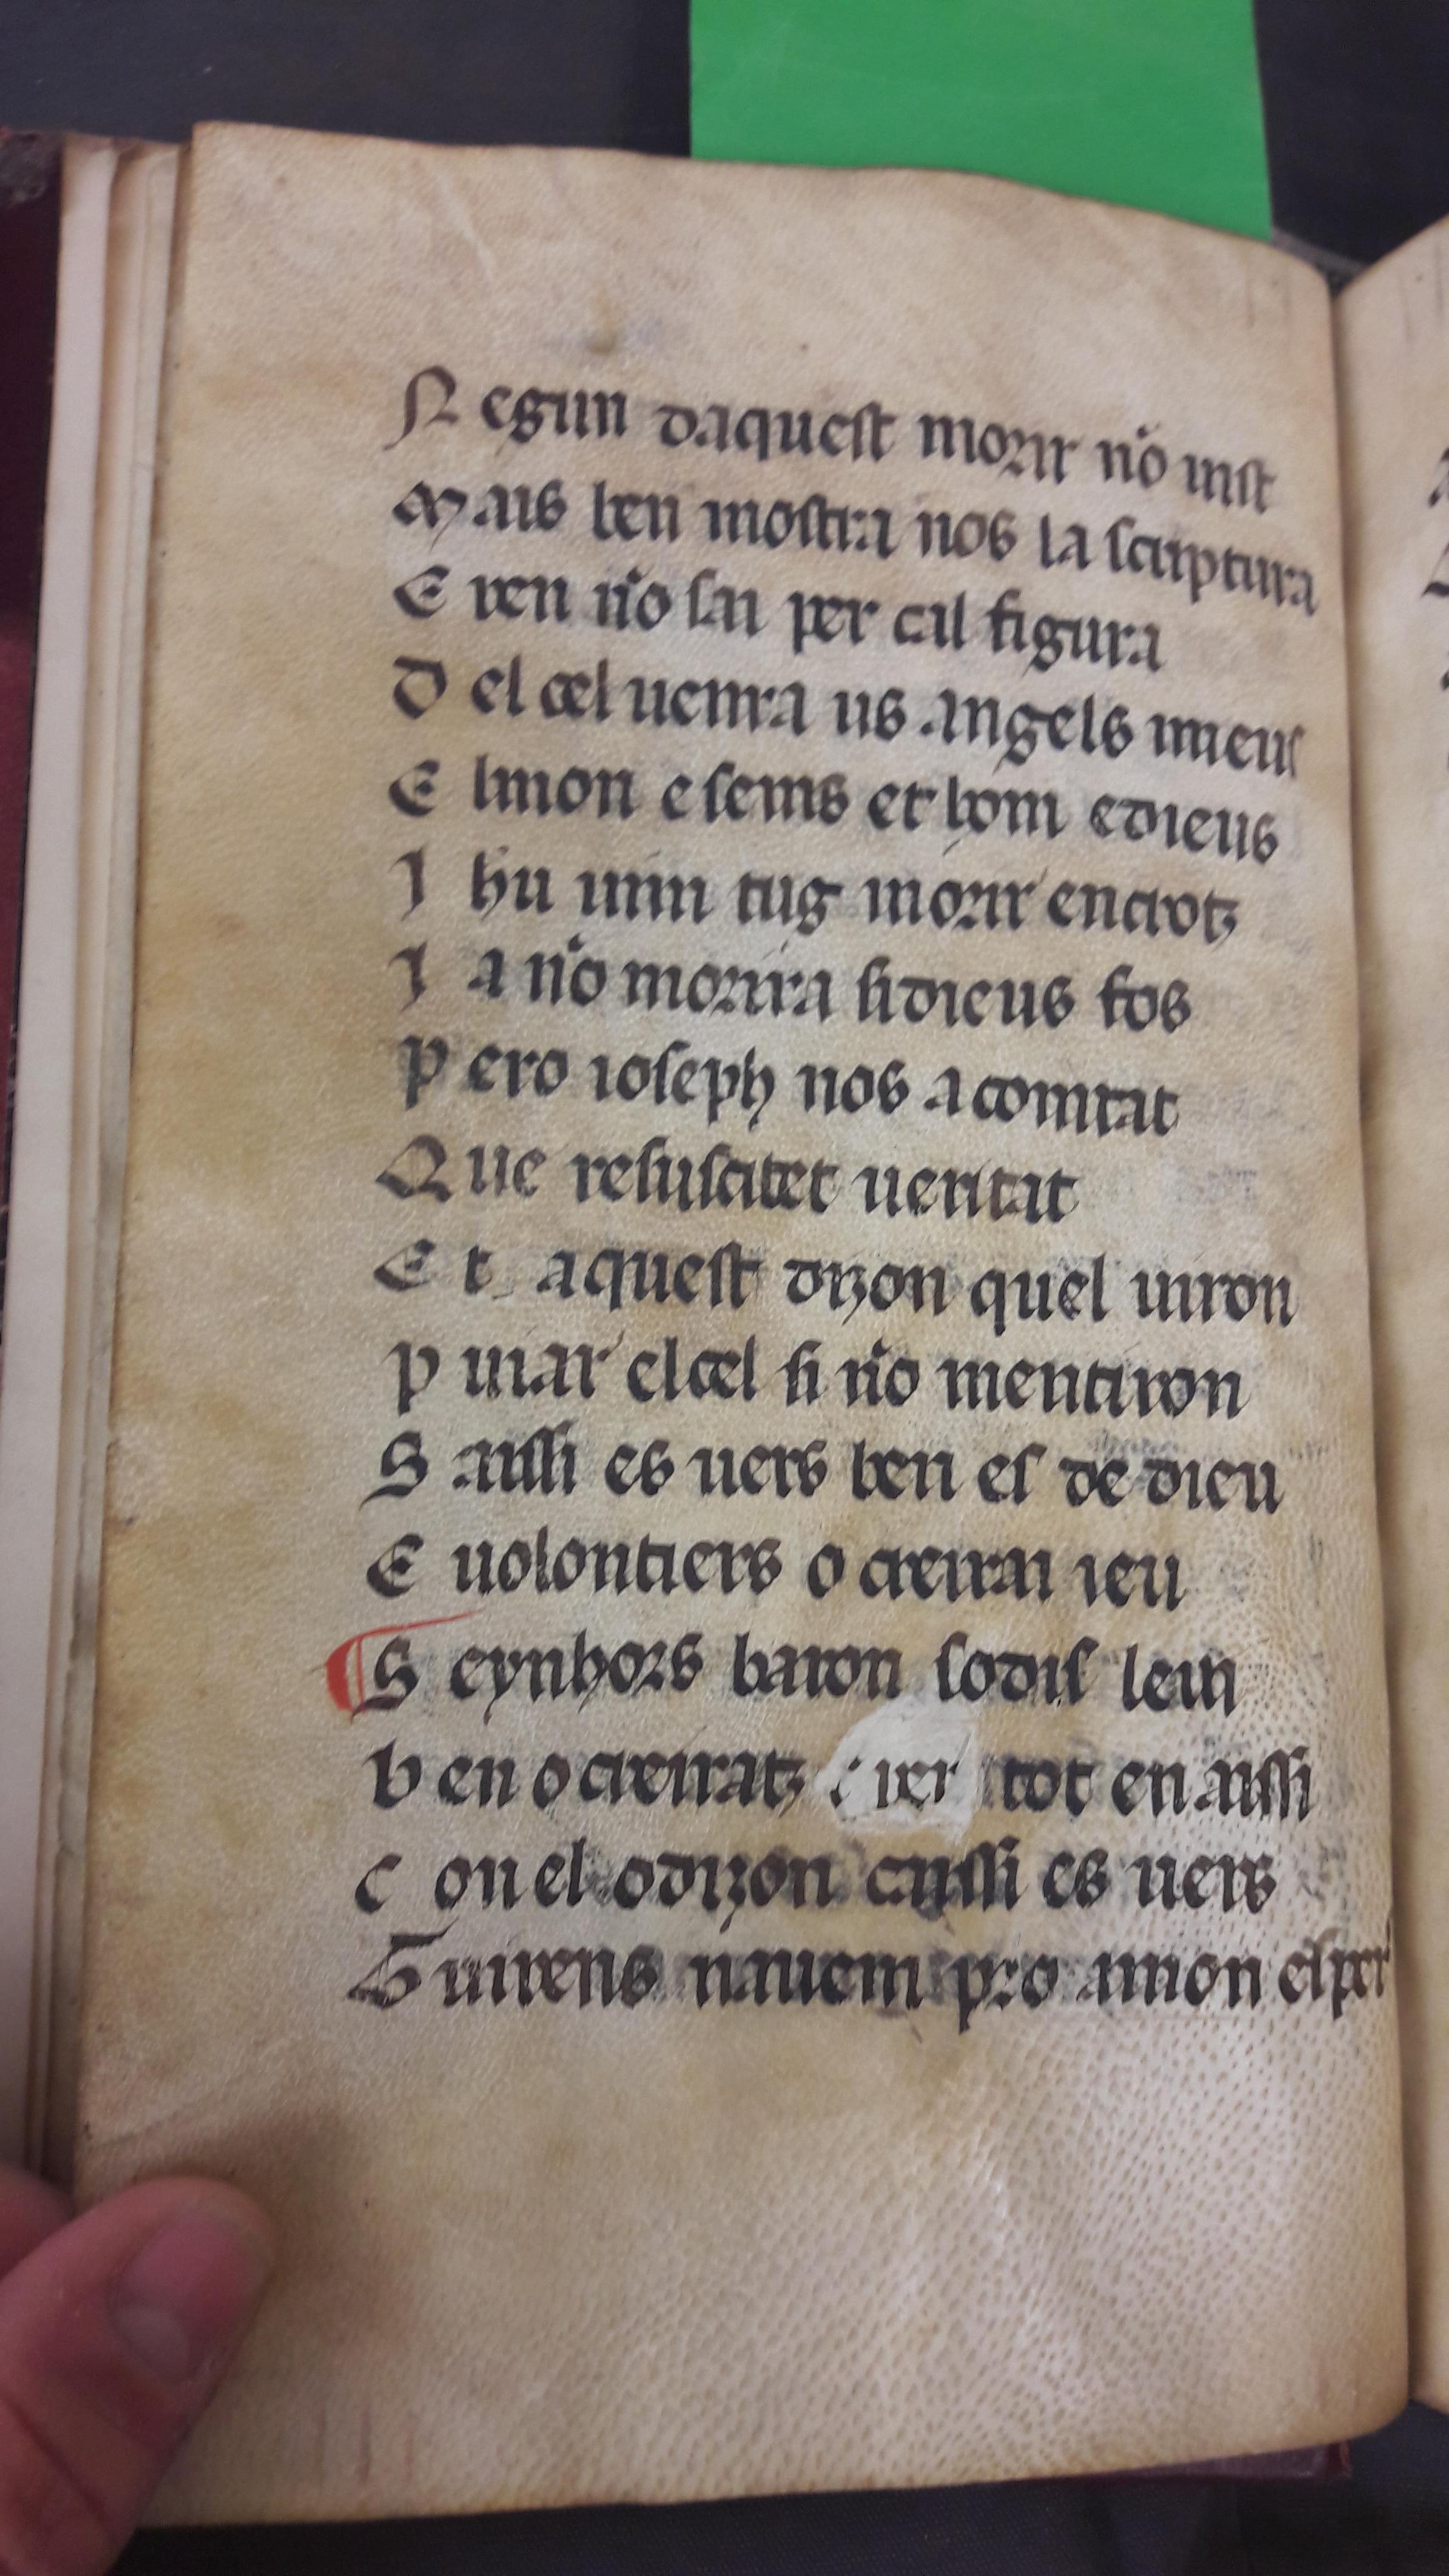 N egun daquest morir nõ uist
M ais ben mostra nos la scriptura
E ren nõ sai per cal figura
D el cel uenra us angels mieus
E lmon esems et hom edieus
I hu uim tug morir encrotz
I a nõ morira sidieus fos
P ero ioseph nos a comtat
Q ue resuscitet ueritat
E t aquest dizon quel uiron
P uiar elcel si nõ mentiron
S aissi es uers ben es de dieu
E uolontiers o creirai ieu
S eynhors baron sodis leui
B en o creiratz tot en aissi
C on el odizon caissi es uers
Suirens nauem pro